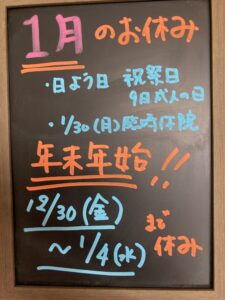 1月のお休み
・日よう日 祝祭日
9日成人の日
・1/30(月)臨時休院
年末年始!!
12/30(金)
〜1/4(水)まで
休み